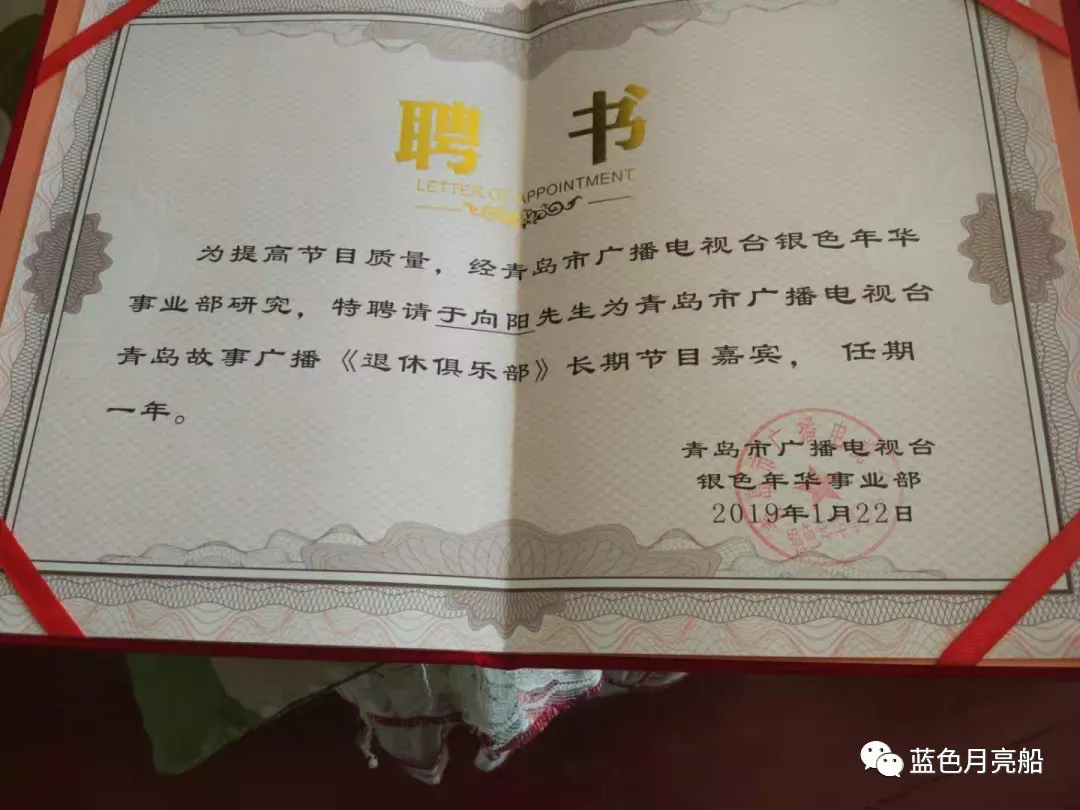 聘 书
LETTER OF APPOINTMENT
为提高节目质量，经青岛市广播电视台银色年华
事业部研究，特聘请于向阳先生为青岛市广播电视台
青岛故事广播《退休俱乐部》长期节目嘉宾，任期
一年。
青岛市广播电视台
银色年华事业部
2019年1月22日
蓝色月亮船